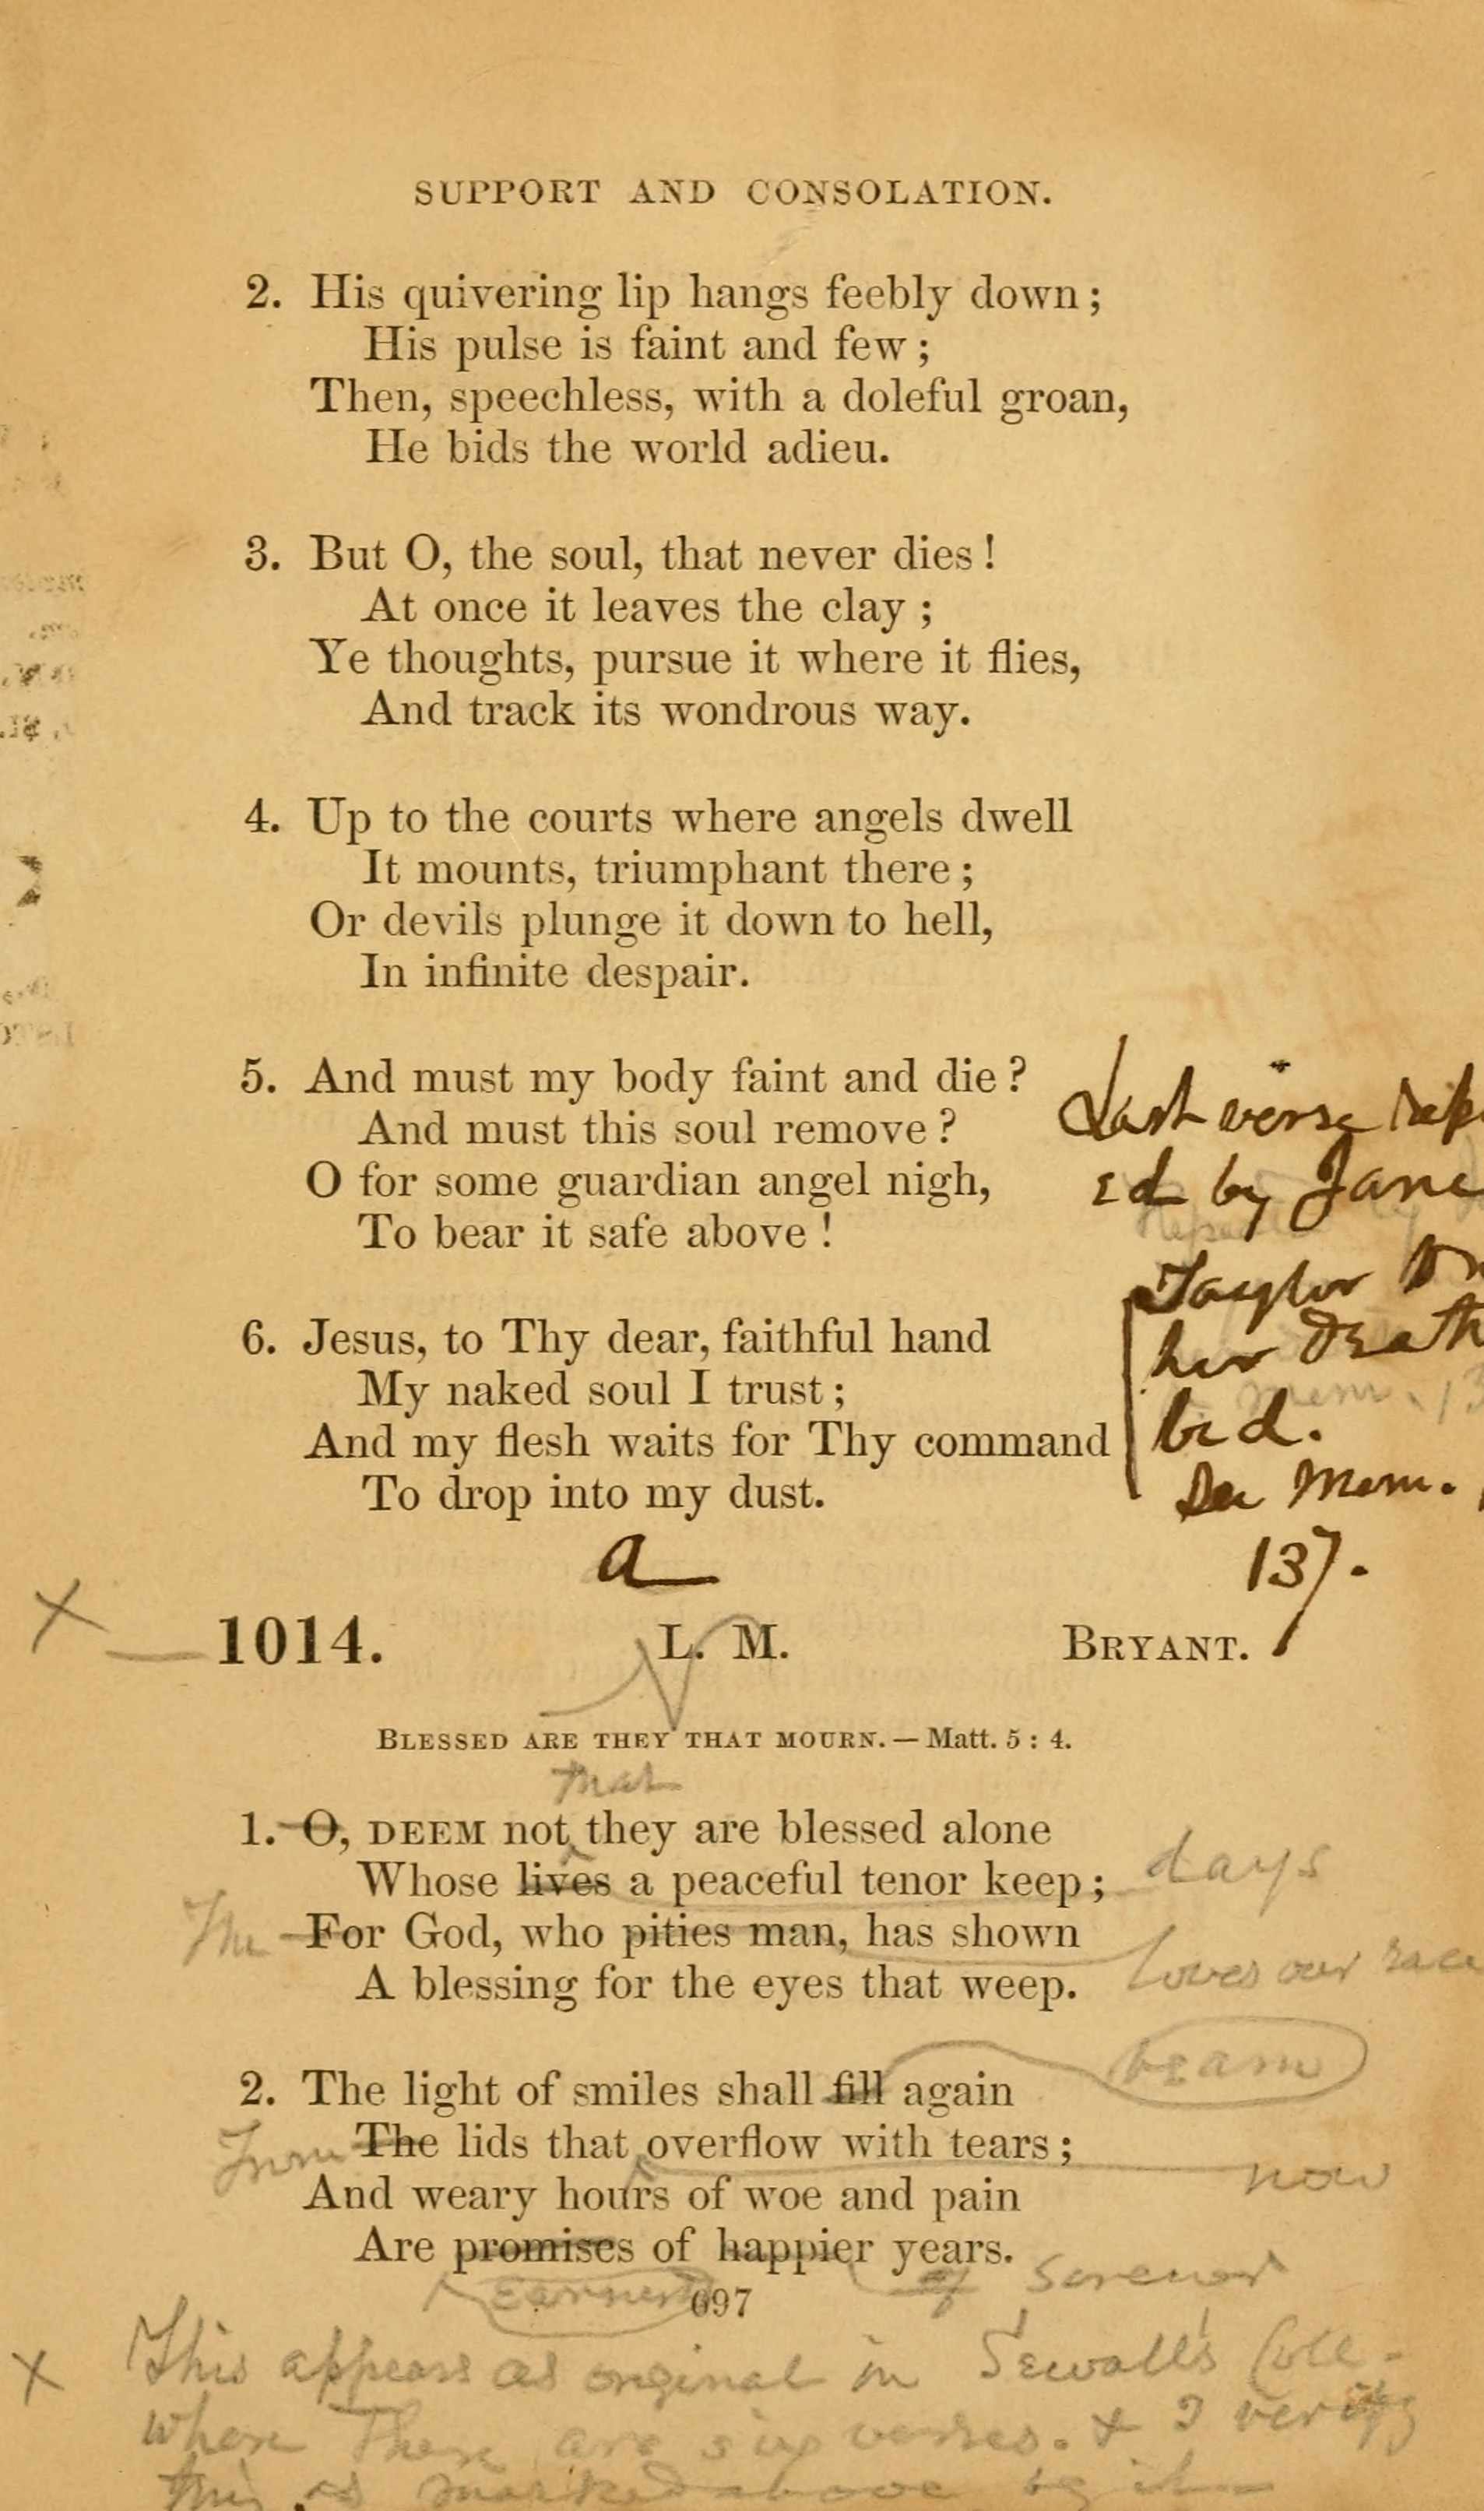 SUPPORT AND CONSOLATION.
2. His quivering lip hangs feebly down;
His pulse is faint and few;
Then, speechless, with a doleful groan,
He bids the world adieu.
3. But O, the soul, that never dies!
At once it leaves the clay;
Ye thoughts, pursue it where it flies,
And track its wondrous way.
4. Up to the courts where angels dwell
It mounts, triumphant there;
Or devils plunge it down to hell,
In infinite despair.
5. And must my body faint and die?
And must this soul remove?
O for some guardian angel nigh,
To bear it safe above!
Last verse rep
ed by Jane
Taylor on
her death
bed.
See Mem.
137.
6. Jesus, to Thy dear, faithful hand
My naked soul I trust;
And my flesh waits for Thy command
To drop into my dust.
a
x 1014. L. M. BRYANT.
BLESSED ARE THEY THAT MOURN. — Matt. 5 : 4.
that
1. O, DEEM not they are blessed alone
Whose lives a peaceful tenor keep; days
The For God, who pities man, has shown
A blessing for the eyes that weep. loves our race
beam
2. The light of smiles shall fill again
From The lids that overflow with tears; now
And weary hours of woe and pain
Are promises of happier years.
earnest of serener
697
x This appears as original in Sewall's Coll.
where there are six verses. & I verify
this as marked above by it